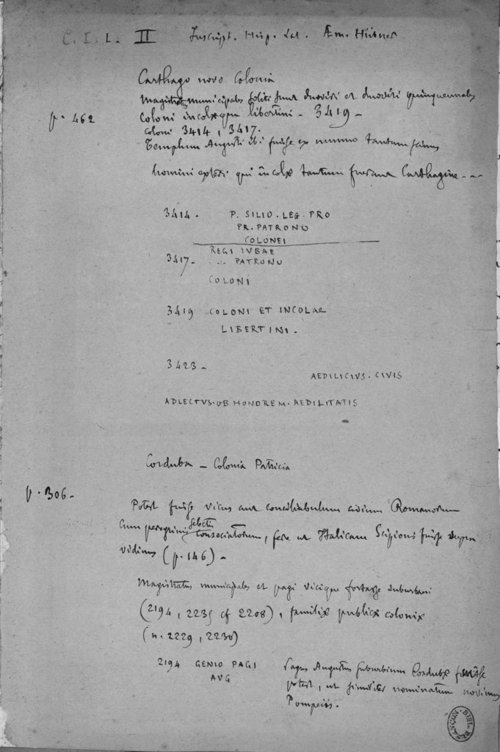 C. I. L. II Inscript. Hisp. Lat. Æm. Hübner
Carthago nova Colonia
magistratus municipales soliti sunt duoviri et duoviri quinquennales
p. 462 coloni incolæque libertini - 3419 -
coloni 3414, 3417.
Templum Augusti ibi fuisse ex nummo tantum
homini qui incolæ tantum Carthagine - - -
3414. P. SILIO. LEG. PRO
PR. PATRONO
COLONEI
REGI IVBAE
3417. ... PATRONO
COLONI
3419 COLONI ET INCOLAE
LIBERTINI -
3423 -
AEDILICIVS. CIVIS
ADLECTVS. OB HONOREM. AEDILITATIS
Corduba - Colonia Patricia
p. 306 -
Potest fuisse vicus aut conciliabulum civium Romanorum
cum peregrinis selectis consociatorum, fere ut Italicam Scipionis fuisse supra
vidimus (p. 146) -
Magistratus municipales et pagi vicique fortasse suburbani
(2194, 2235 cf 2208), familiæ publicæ coloniæ
(n. 2229, 2230)
2194 GENIO PAGI
AVG
Pagus Augustus suburbium Cordubæ fuisse
potest, ut similiter nominatum novimus
Pompeiis.